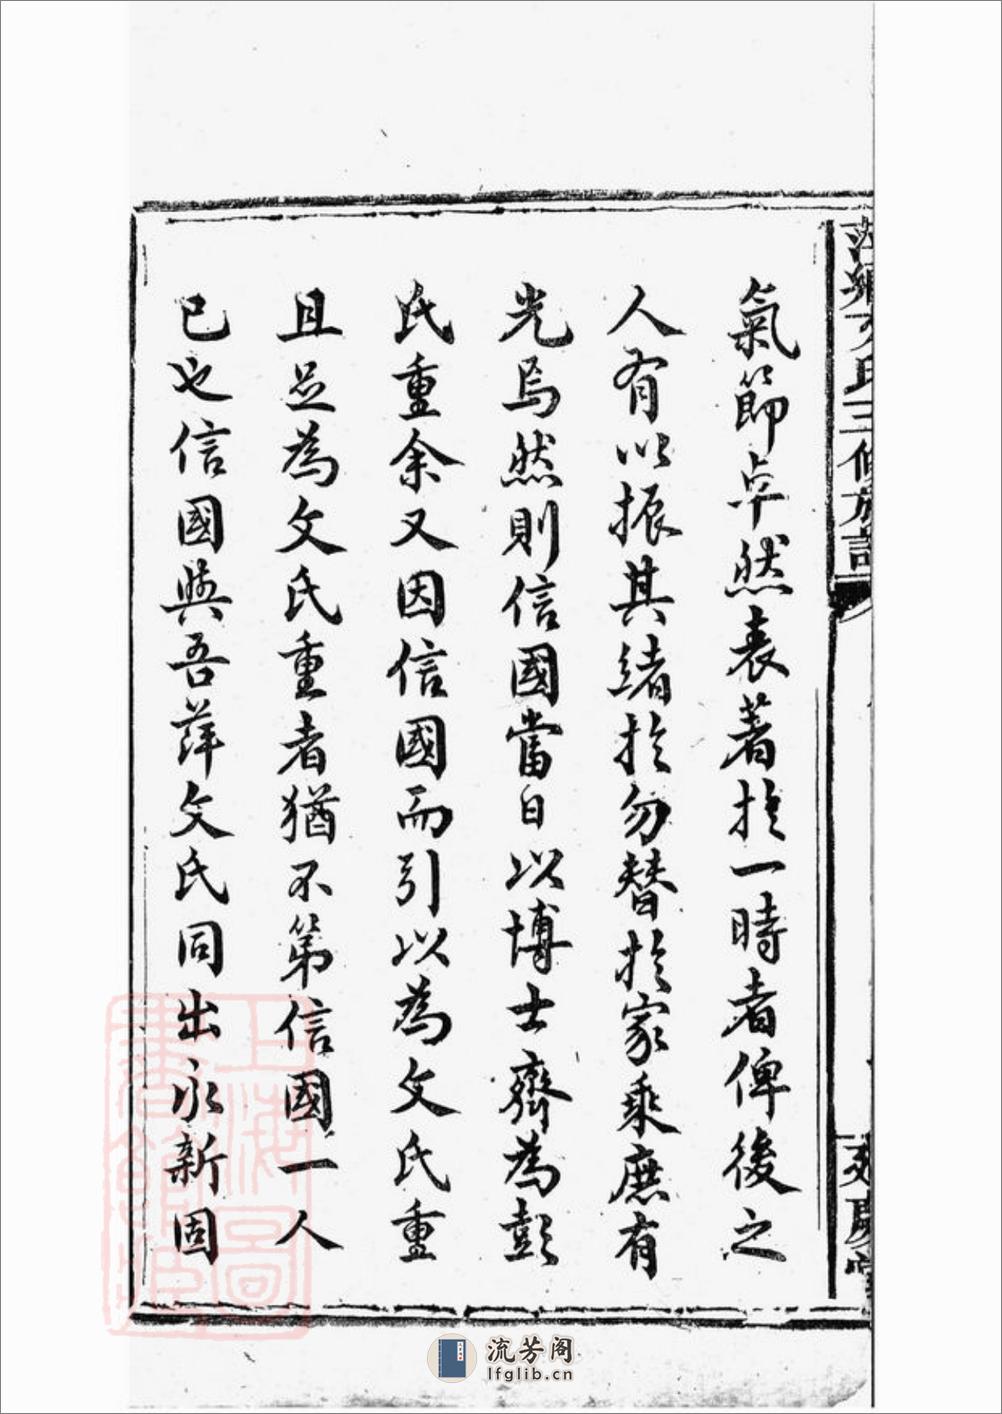 萍鄉文氏三修族譜
氣節卓然表著於一時者俾後之
人有以振其緒於勿替於家乘庶有
光焉然則信國當日以博士齊為彭
氏重余又因信國而引以為文氏重
且足為文氏重者猶不第信國一人
已也信國與吾萍文氏同出永新固
上海圖書館藏
流芳阁
lfglib.cn